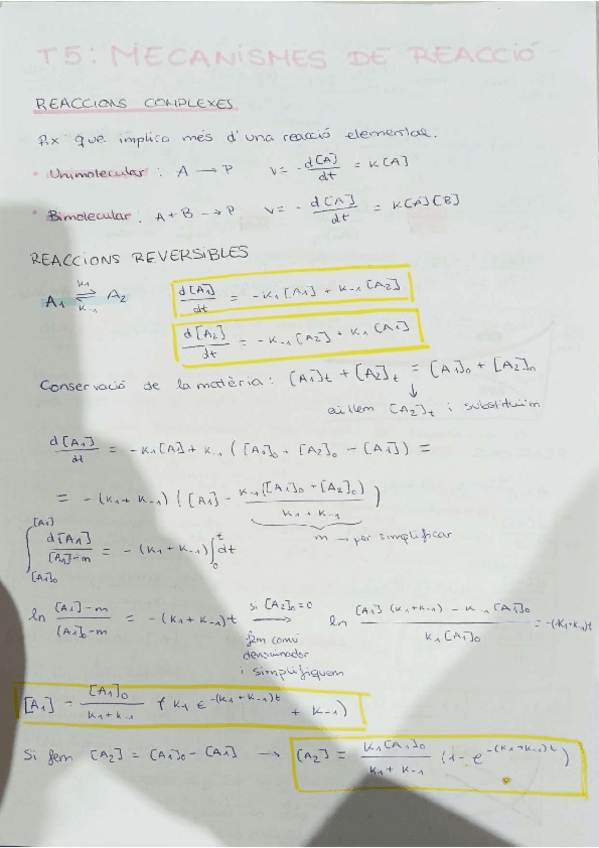 T5: MECANISMES DE REACCIÓ
REACCIONS COMPLEXES
Rx que implica més d'una reacció elemental.
• Unimolecular: A → P V = - d[A]/dt = K[A]
• Bimolecular: A + B → P V = - d[A]/dt = K[A][B]
REACCIONS REVERSIBLES
A₁ ⇌ A₂ (K₁, K₋₁) d[A₁]/dt = -K₁[A₁] + K₋₁[A₂]
d[A₂]/dt = -K₋₁[A₂] + K₁[A₁]
Conservació de la matèria: [A₁]t + [A₂]t = [A₁]₀ + [A₂]₀
↓
aïllem [A₂]t i substituïm
d[A₁]/dt = -K₁[A] + K₋₁ ([A₁]₀ + [A₂]₀ - [A₁]) =
= -(K₁ + K₋₁) ([A₁] - K₋₁([A₁]₀ + [A₂]₀)/(K₁ + K₋₁))
m → per simplificar
∫[A₁]₀^[A₁] d[A₁]/([A₁]-m) = -(K₁ + K₋₁) ∫₀^t dt
ln ([A₁]-m)/([A₁]₀-m) = -(K₁ + K₋₁)t si [A₂]₀=0 → ln ([A₁](K₁+K₋₁) - K₋₁[A₁]₀)/(K₁[A₁]₀) = -(K₁+K₋₁)t
fem comú
denominador
i simplifiquem
[A₁] = [A₁]₀/(K₁+K₋₁) (K₁ e^(-(K₁+K₋₁)t) + K₋₁)
Si fem [A₂] = [A₁]₀ - [A₁] → [A₂] = K₁[A₁]₀/(K₁ + K₋₁) (1 - e^(-(K₁+K₋₁)t))